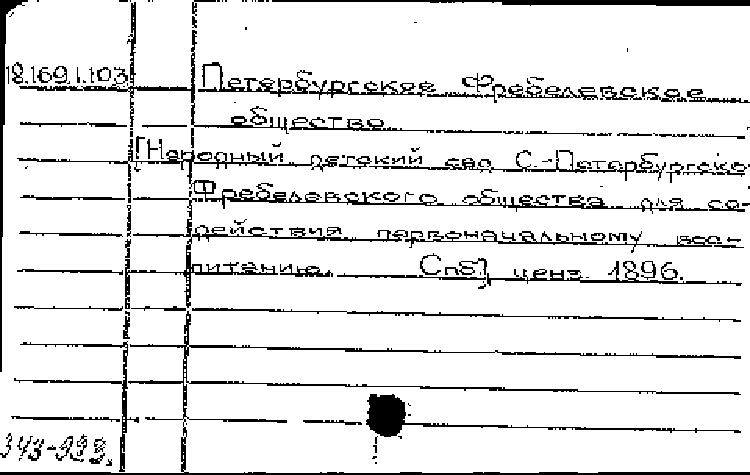 18.169.1.103
Петербургское Фребелевское
общество
[Народный детский сад С.-Петербургско-
Фребелевского общества для со-
действия первоначальному вос-
питанию. Спб], ценз. 1896.
343-993.